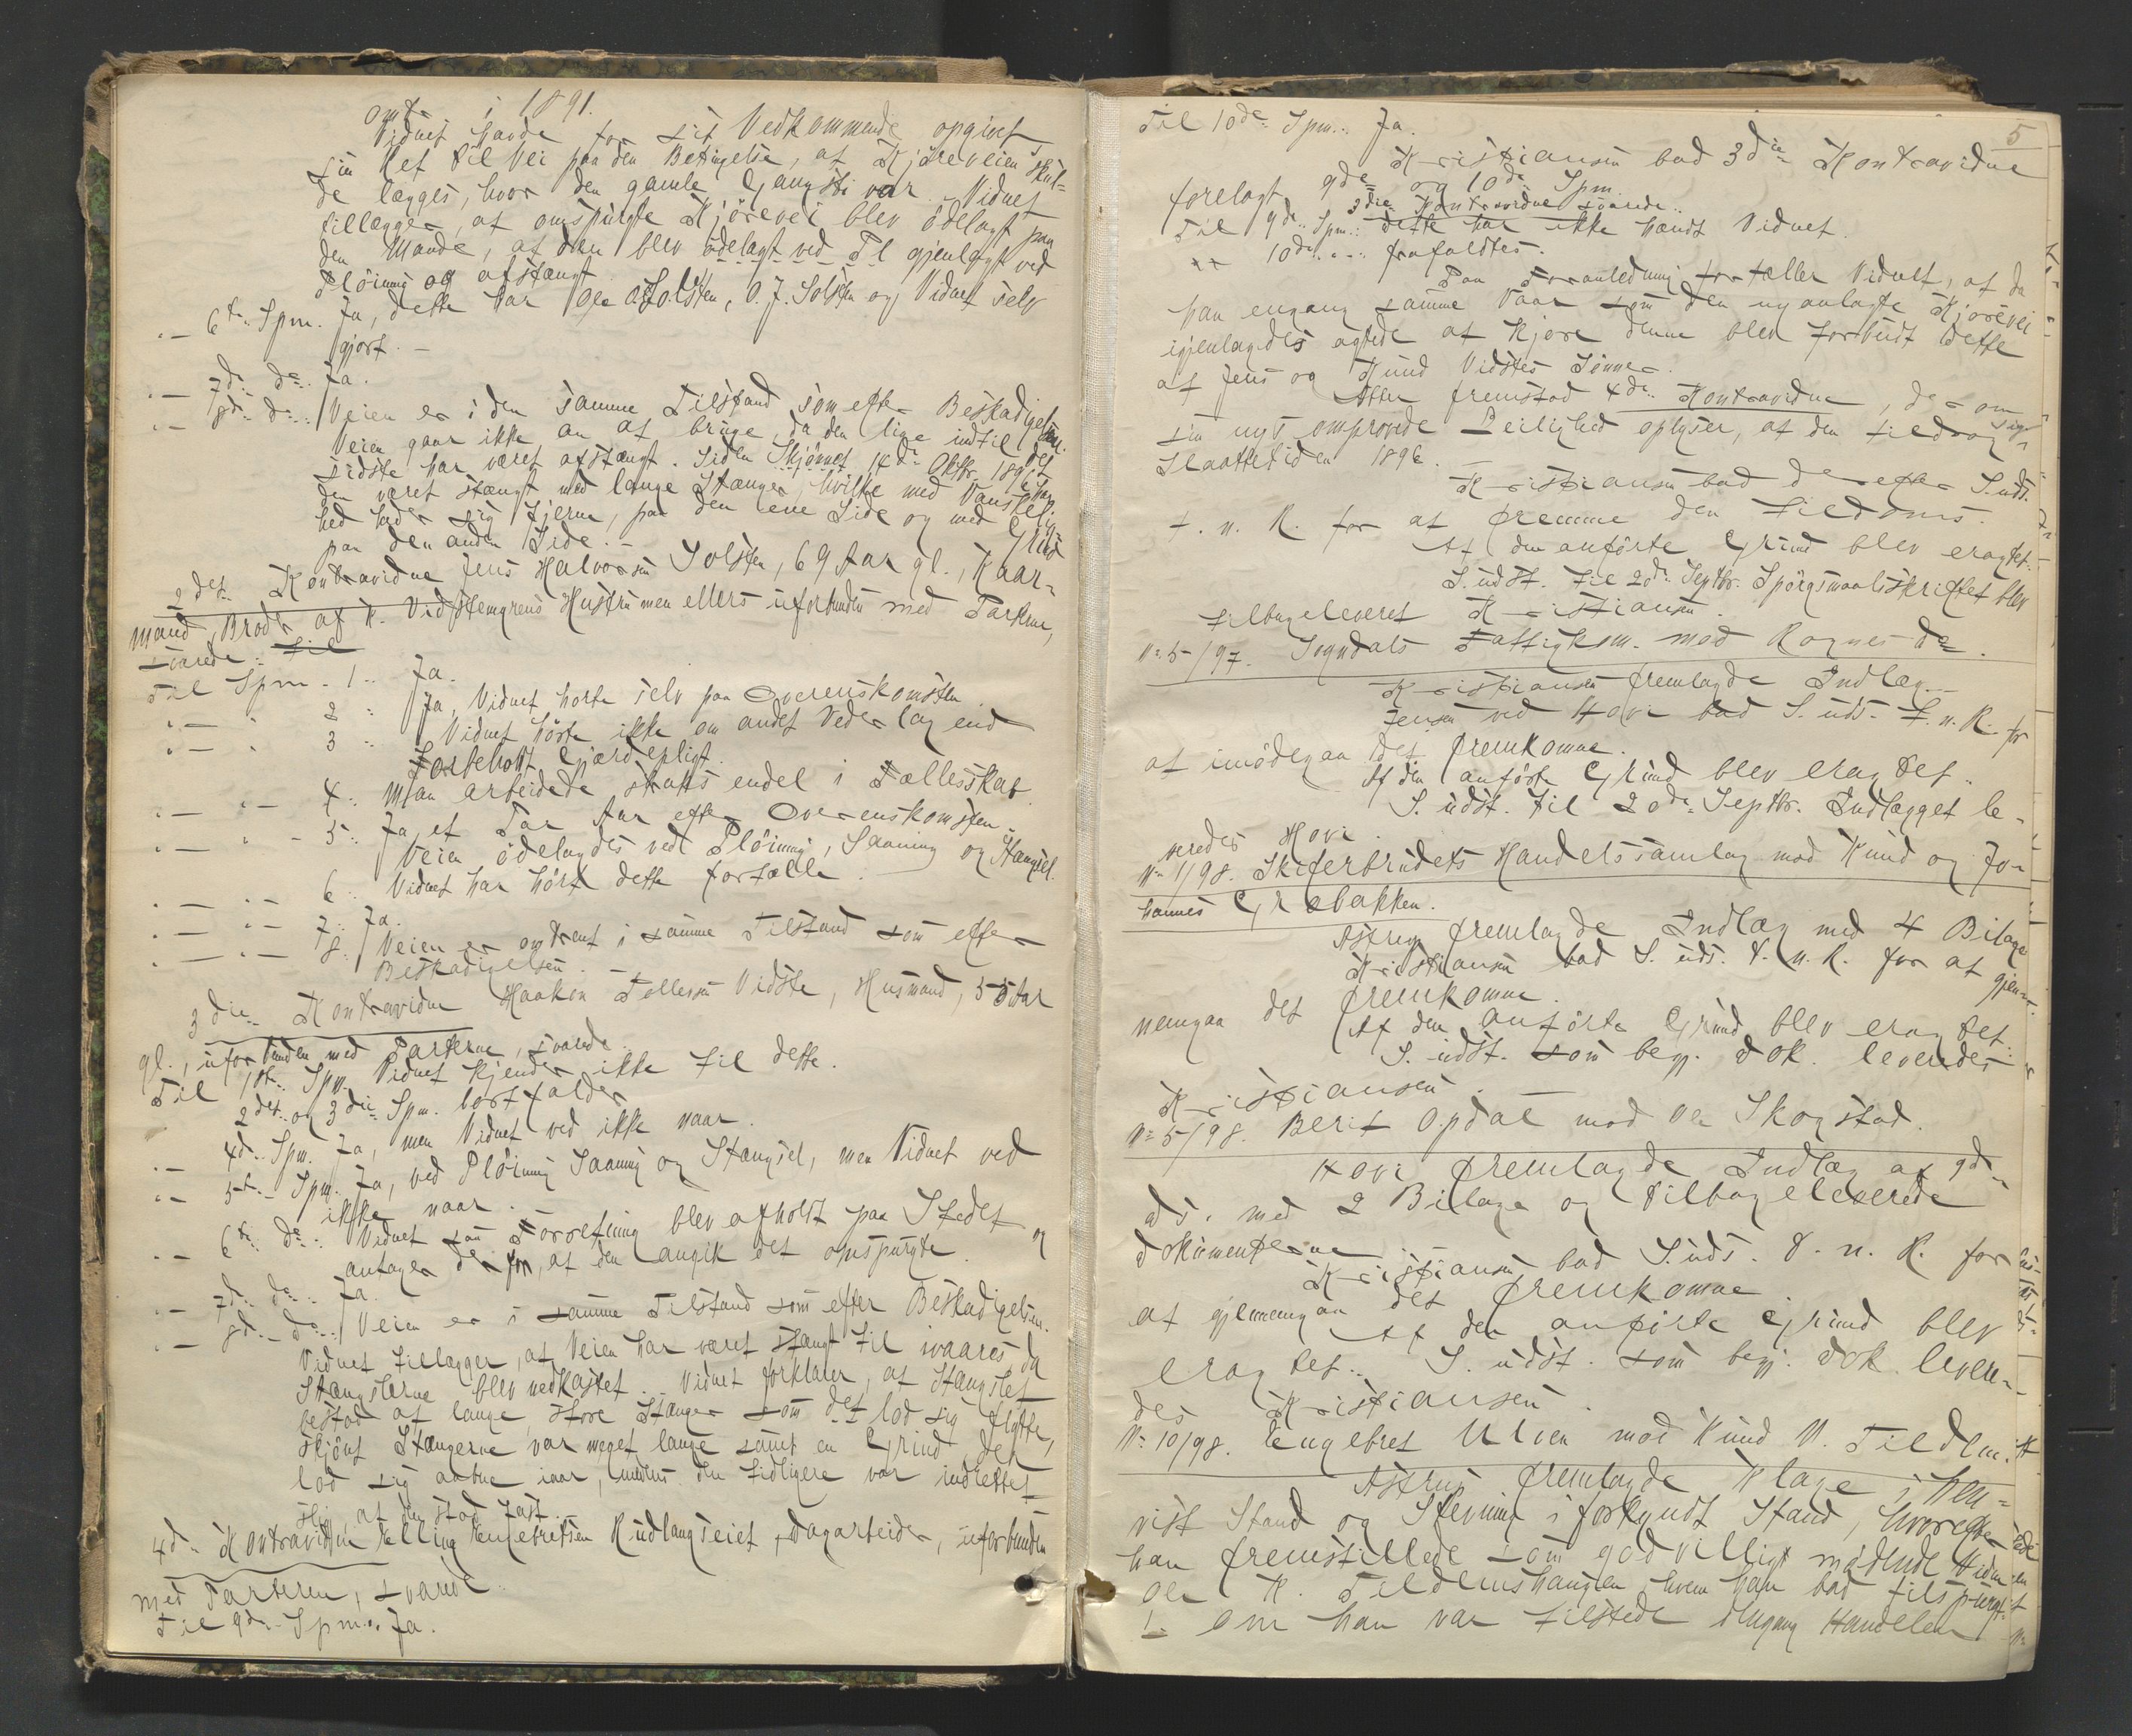 omt. i 1891.
Vidnet havde for sit Vedkommende opgivet
sin Ret til Vei paa den Betingelse, at Kjöreveien skul-
de lægges, hvor den gamle Gangsti var. Vidnet
tillægger, at omspurgte Kjörevei blev ödelagt paa
den Maade, at den blev ödelagt ved Pl gjenlagt ved
Plöining og afstængt.
" — 6te Spm. Ja, dette har Ole Solsten, O. J. Solsten og Vidnet selv
gjort. —
" — 7de do.. Ja.
" — 8de do.. Veien er i den samme Tilstand som efter Beskadigelsen.
Veien gaar ikke an at bruge, da den lige indtil det
sidste har været afstængt. Siden Skjönnet 14de Oktbr. 1896 har
den været stængt med lange Stænger, hvilke med Vanskelig-
hed lader sig fjerne, paa den ene Side og med Grind
paa den anden Side. —
2det Kontravidne Jens Halvorsen Solsten, 69 Aar gl., Kaar-
mand, Broder af K. Vidstengrens Hustru men ellers uforbunden med Parterne,
svarede: til
Til Spm. 1.. Ja.
" — " 2 " Ja, Vidnet hørte selv paa Overenskomsten.
" — " 3 " Vidnet hörte ikke om andet Vederlag end
Forbeholdt Gjærdepligt.
" — " — 4.. Man arbeidede straks endel i Fællesskab
" — " — 5.. Ja, et Par Aar efter Overenskomsten.
Veien ödelagdes ved Plöining, Saaning og Stængsel.
" — " — 6.. Vidnet har hört dette fortælle.
" — " — 7.. Ja.
" — " — 8.. Veien er omtrent i samme Tilstand som efter
Beskadigelsen. —
3die Kontravidne Haakon Tollefsen Vidste, Husmand, 55 Aar
gl., uforbunden med Parterne, svarede:
Til 1ste Spm. Vidnet kjender ikke til dette.
2det og 3die Spm. bortfalder
" — 4de Spm. Ja, men Vidnet ved ikke naar.
" — 5te — Spm. Ja, ved Plöining Saaning og Stængsel, men Vidnet ved
ikke naar.
" — 6te do.. Vidnet saa Forretning blev afholdt paa Stedet og
antager derfor, at den angik det omspurgte.
" — 7de do.. Ja.
" — 8de — do.. Veien er i samme Tilstand som efter Beskadigelsen.
Vidnet tillægger, at Veien har været stængt til ivaares da
Stængslerne blev nedkastet. Vidnet forklarer, at Stængslet
bestod af lange, store Stænger som det lod sig flytte,
skjönt Stængerne var meget lange samt en Grind, der
lod sig aabne iaar, medens den tidligere var indrettet
slig, at den stod fast.
4de Kontravidne Elling Engebretsen Rudlangseiet, Dagarbeider, uforbunden
med Parterne, svarede:
Til 9de Spm.. Ja.
5
Til 10de Spm.. Ja.
Kristiansen bad 3die Kontravidne
forelagt 9de og 10de Spm.
3die Kontravidne svarede:
Til 9de Spm.: dette har ikke hændt Vidnet.
" " 10de ".." frafaldtes.
Paa Foranledning fortæller Vidnet, at da
han engang samme Vaar som den nyanlagte Kjörevei
igjenlagdes agtede at kjöre denne blev forbudt dette
af Jens og Knud Vidstes Sönner.
Atter fremstod 4de Kontravidne, der om
sin nys omprovede Leilighed oplyser, at den tildrog sig
Slaattetiden 1896. —
Kristiansen bad derefter S. uds.
t. n. R. for at fremme den til doms.
Af den anförte Grund blev eragtet:
S. udst. til 20de Septbr. Spörgsmaalsskriftet blev
tilbageleveret Kristiansen.
No 5/97. Sogndals Fattigkom. mod Rognes do.
Kristiansen fremlagde Indlæg
Jensen ved Hovi bad S. uds. t. n. R. for
at imödegaa det fremkomne.
Af den anförte Grund blev eragtet:
S. udst. til 20de Septbr. Indlægget le-
veredes Hovi.
No 1/98. Skiferbrudets Handelssamlag mod Knud og Jo-
hannes Græbakken.
Astrup fremlagde Indlæg med 4 Bilage
Kristiansen bad S. uds. t. n. R. for at gjen-
nemgaa det fremkomne.
Af den anförte Grund blev eragtet:
S. udst. som begj. Dok. leveredes
Kristiansen. —
No 5/98. Berit Opdal mod Ole Skogstad.
Hovi fremlagde Indlæg af 9de
ds. med 2 Bilage og tilbageleverede
dokumenterne
Kristiansen bad S. uds. t. n. R. for
at gjennemgaa det fremkomne.
Af den anförte Grund blev
eragtet: S. udst. som begj. Dok. levere-
des Kristiansen.
No 10/98. Engebret Ulven mod Knud N.
Astrup fremlagde Klage i hen-
vist Stand og Stevning i forkyndt Stand, hvorefter
han fremstillede som godvilligt mödende Vidne
Ole K. hvem han bad tilspurgt:
1. Om han var tilstede dengang Handelen